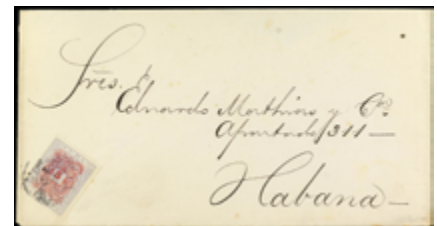 Sres. D.
Eduardo Matthias y Ca.
Apartado 311 —
Habana —